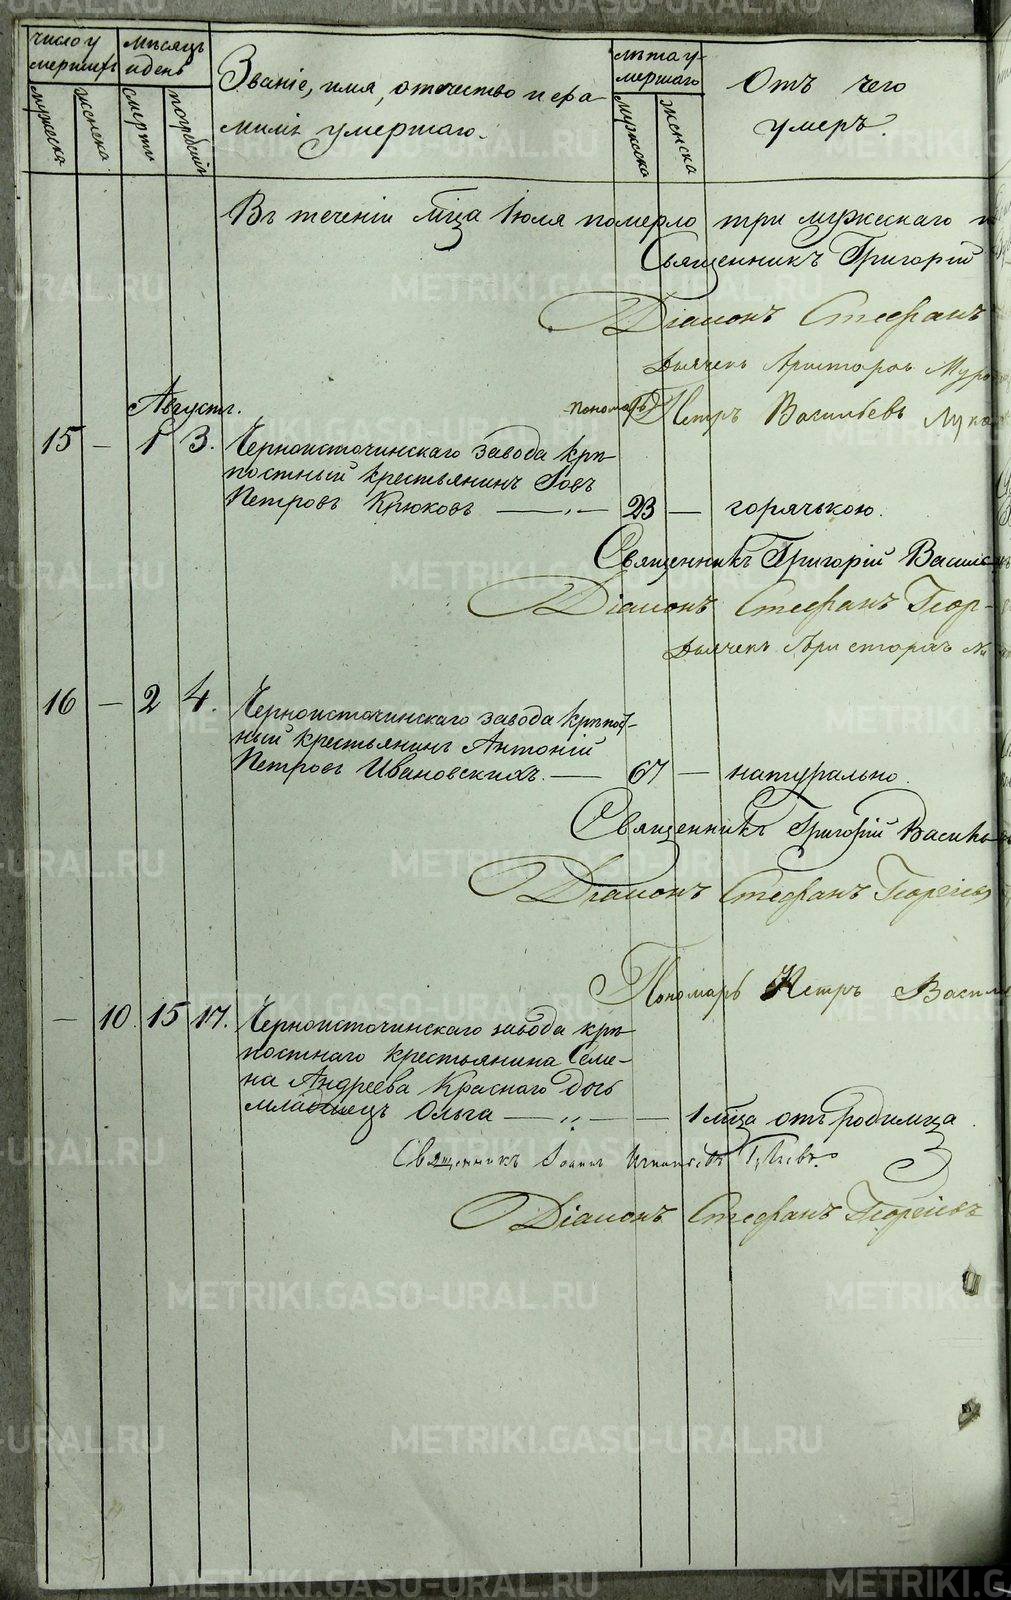 Число у
мершихъ
Мѣсяцъ
и день
Званіе, имя, отчество и фа-
милія умершаго.
Лѣта у-
мершаго
Отъ чего
умеръ.
мужеска
женска
смерти
погребенія
мужеска
женска
Въ теченіи мца Іюля померло три мужескаго
Священникъ Григорій
Діаконъ Стефанъ
Дьячекъ Аристархъ
Августъ.
Пономарь Петръ Васильевъ
15 — 1 3. Черноисточинскаго завода крѣ-
постный крестьянинъ Іовъ
Петровъ Крюковъ — „ — 23 — горячькою.
Священникъ Григорій Василь
Діаконъ Стефанъ Геор-
Дьячекъ Аристархъ
16 — 2 4. Черноисточинскаго завода крѣпост-
ный крестьянинъ Антоній
Петровъ Ивановскихъ. — 67 — натурально.
Священникъ Григорій Василь
Діаконъ Стефанъ Георгіев
Пономарь Петръ Василь
— 10. 15 17. Черноисточинскаго завода крѣ-
постнаго крестьянина Семе-
на Андреева Краснаго дочь
младенецъ Ольга — „ — — 1 мца отъ родимца.
Священникъ Іоаннъ
Діаконъ Стефанъ Георгіевъ
METRIKI.GASO-URAL.RU